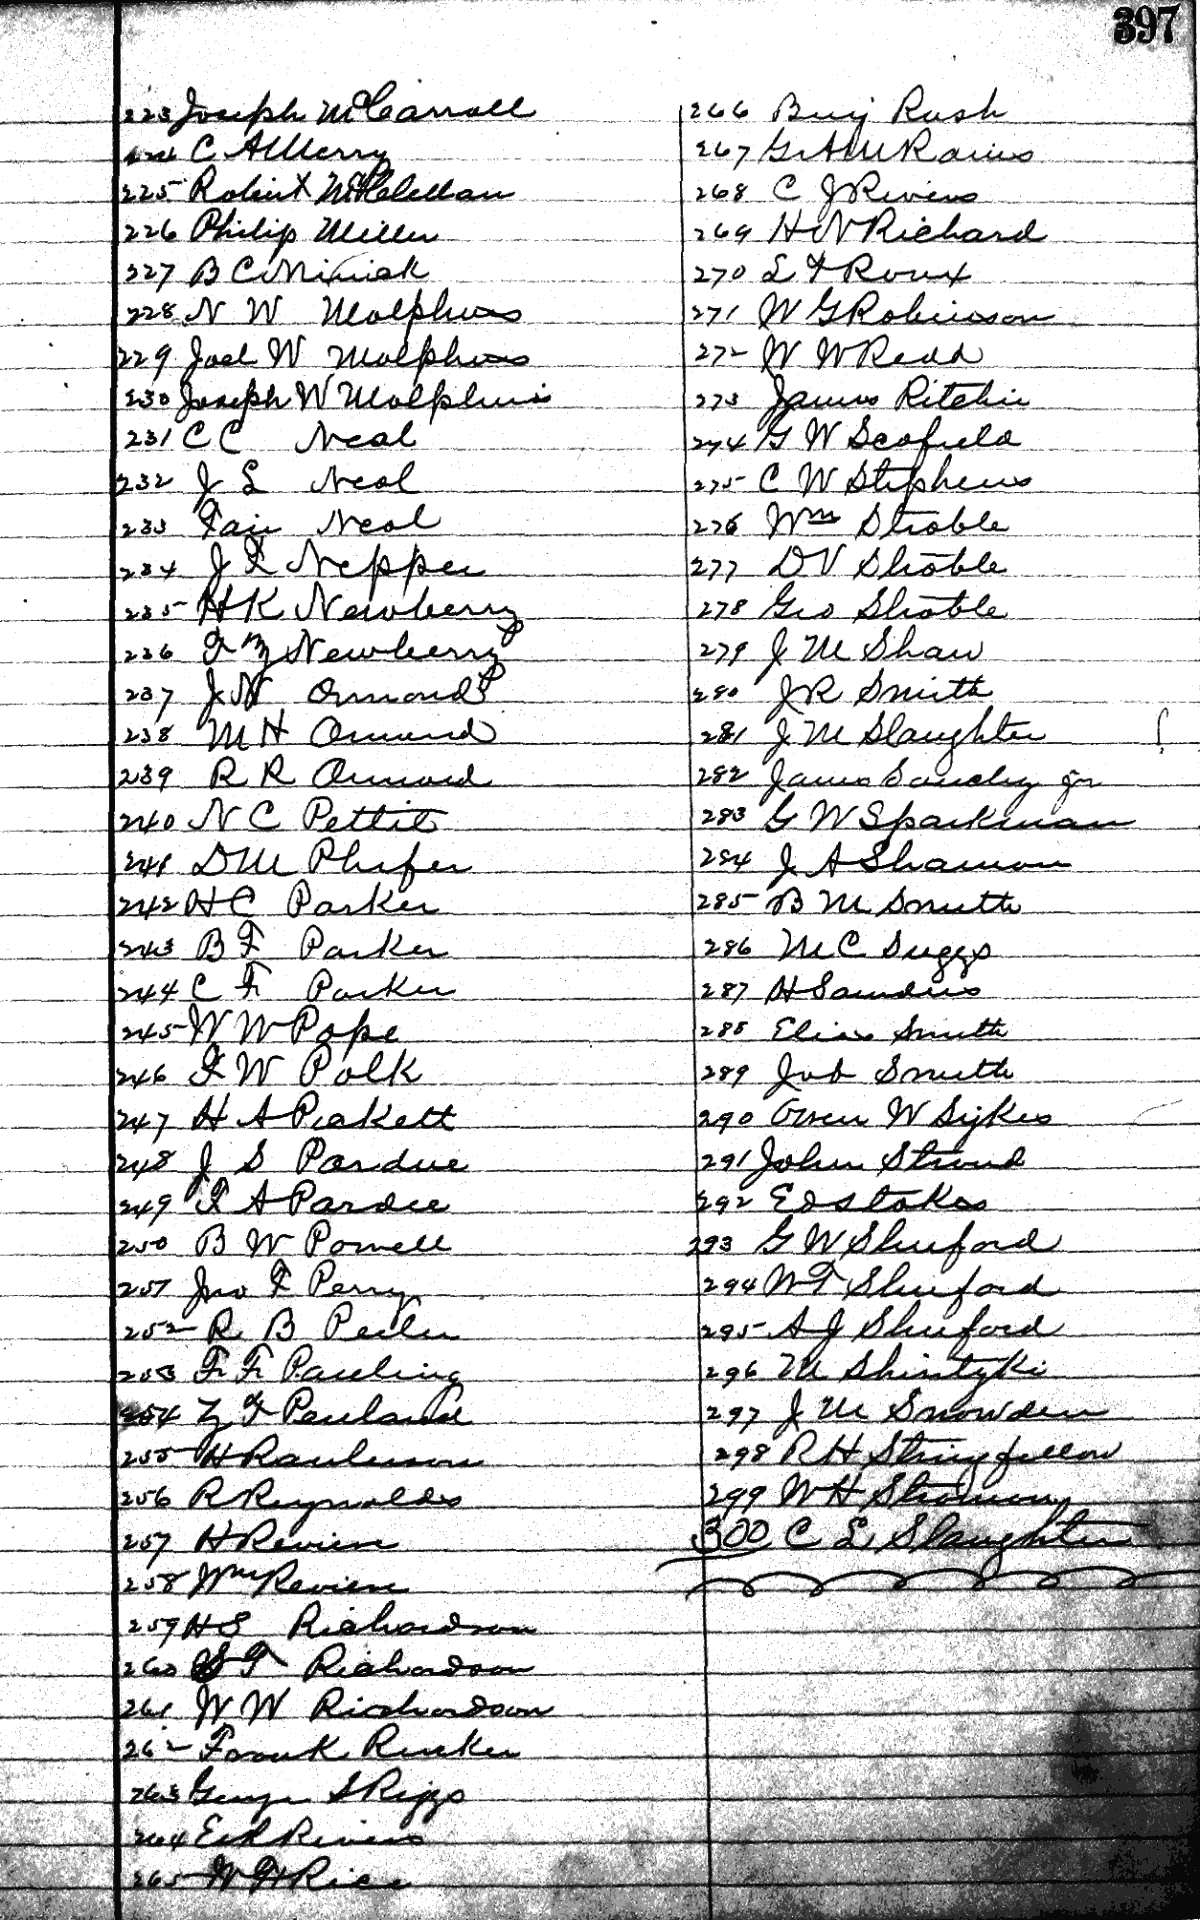 397
223 Joseph McCarroll
224 C A Merry
225 Robert McClellan
226 Philip Miller
227 B C Minick
228 N W Molphus
229 Joel W Molphus
230 Joseph W Molphus
231 C C Neal
232 J L Neal
233 Fair Neal
234 J F Nepper
235 H K Newberry
236 F M Newberry
237 J N Ormond
238 M H Ormond
239 R R Ormond
240 N C Pettit
241 D M Phifer
242 H C Parker
243 B F Parker
244 C F Parker
245 W W Pope
246 F W Polk
247 H A Pickett
248 J S Pardue
249 F A Pardee
250 B W Powell
251 Jno F Perry
252 R B Peeler
253 F F Pauling
254 Z F Penland
255 H Raulerson
256 R Reynolds
257 H Reviere
258 Wm Reviere
259 H S Richardson
260 S F Richardson
261 W W Richardson
262 Frank Rucker
263 George S Riggs
264 Ed Rivers
265 W H Rice
266 Benj Rush
267 G A M Rains
268 C J Rivers
269 H N Richard
270 L F Roux
271 W G Robinson
272 W W Read
273 James Ritchie
274 G W Scofield
275 C W Stephens
276 Wm Stroble
277 D V Stroble
278 Geo Stroble
279 J M Shaw
280 J R Smith
281 J M Slaughter
282 James Sanchy Jr
283 G W Sparkman
284 J A Shannon
285 B M Smith
286 M C Suggs
287 H Sanders
288 Elias Smith
289 Job Smith
290 Owen W Sykes
291 John Stroud
292 Ed Stokes
293 G W Shuford
294 W T Shuford
295 A J Shuford
296 M Shintzki
297 J M Snowden
298 R H Stringfellow
299 W H Stroman
300 C L Slaughter